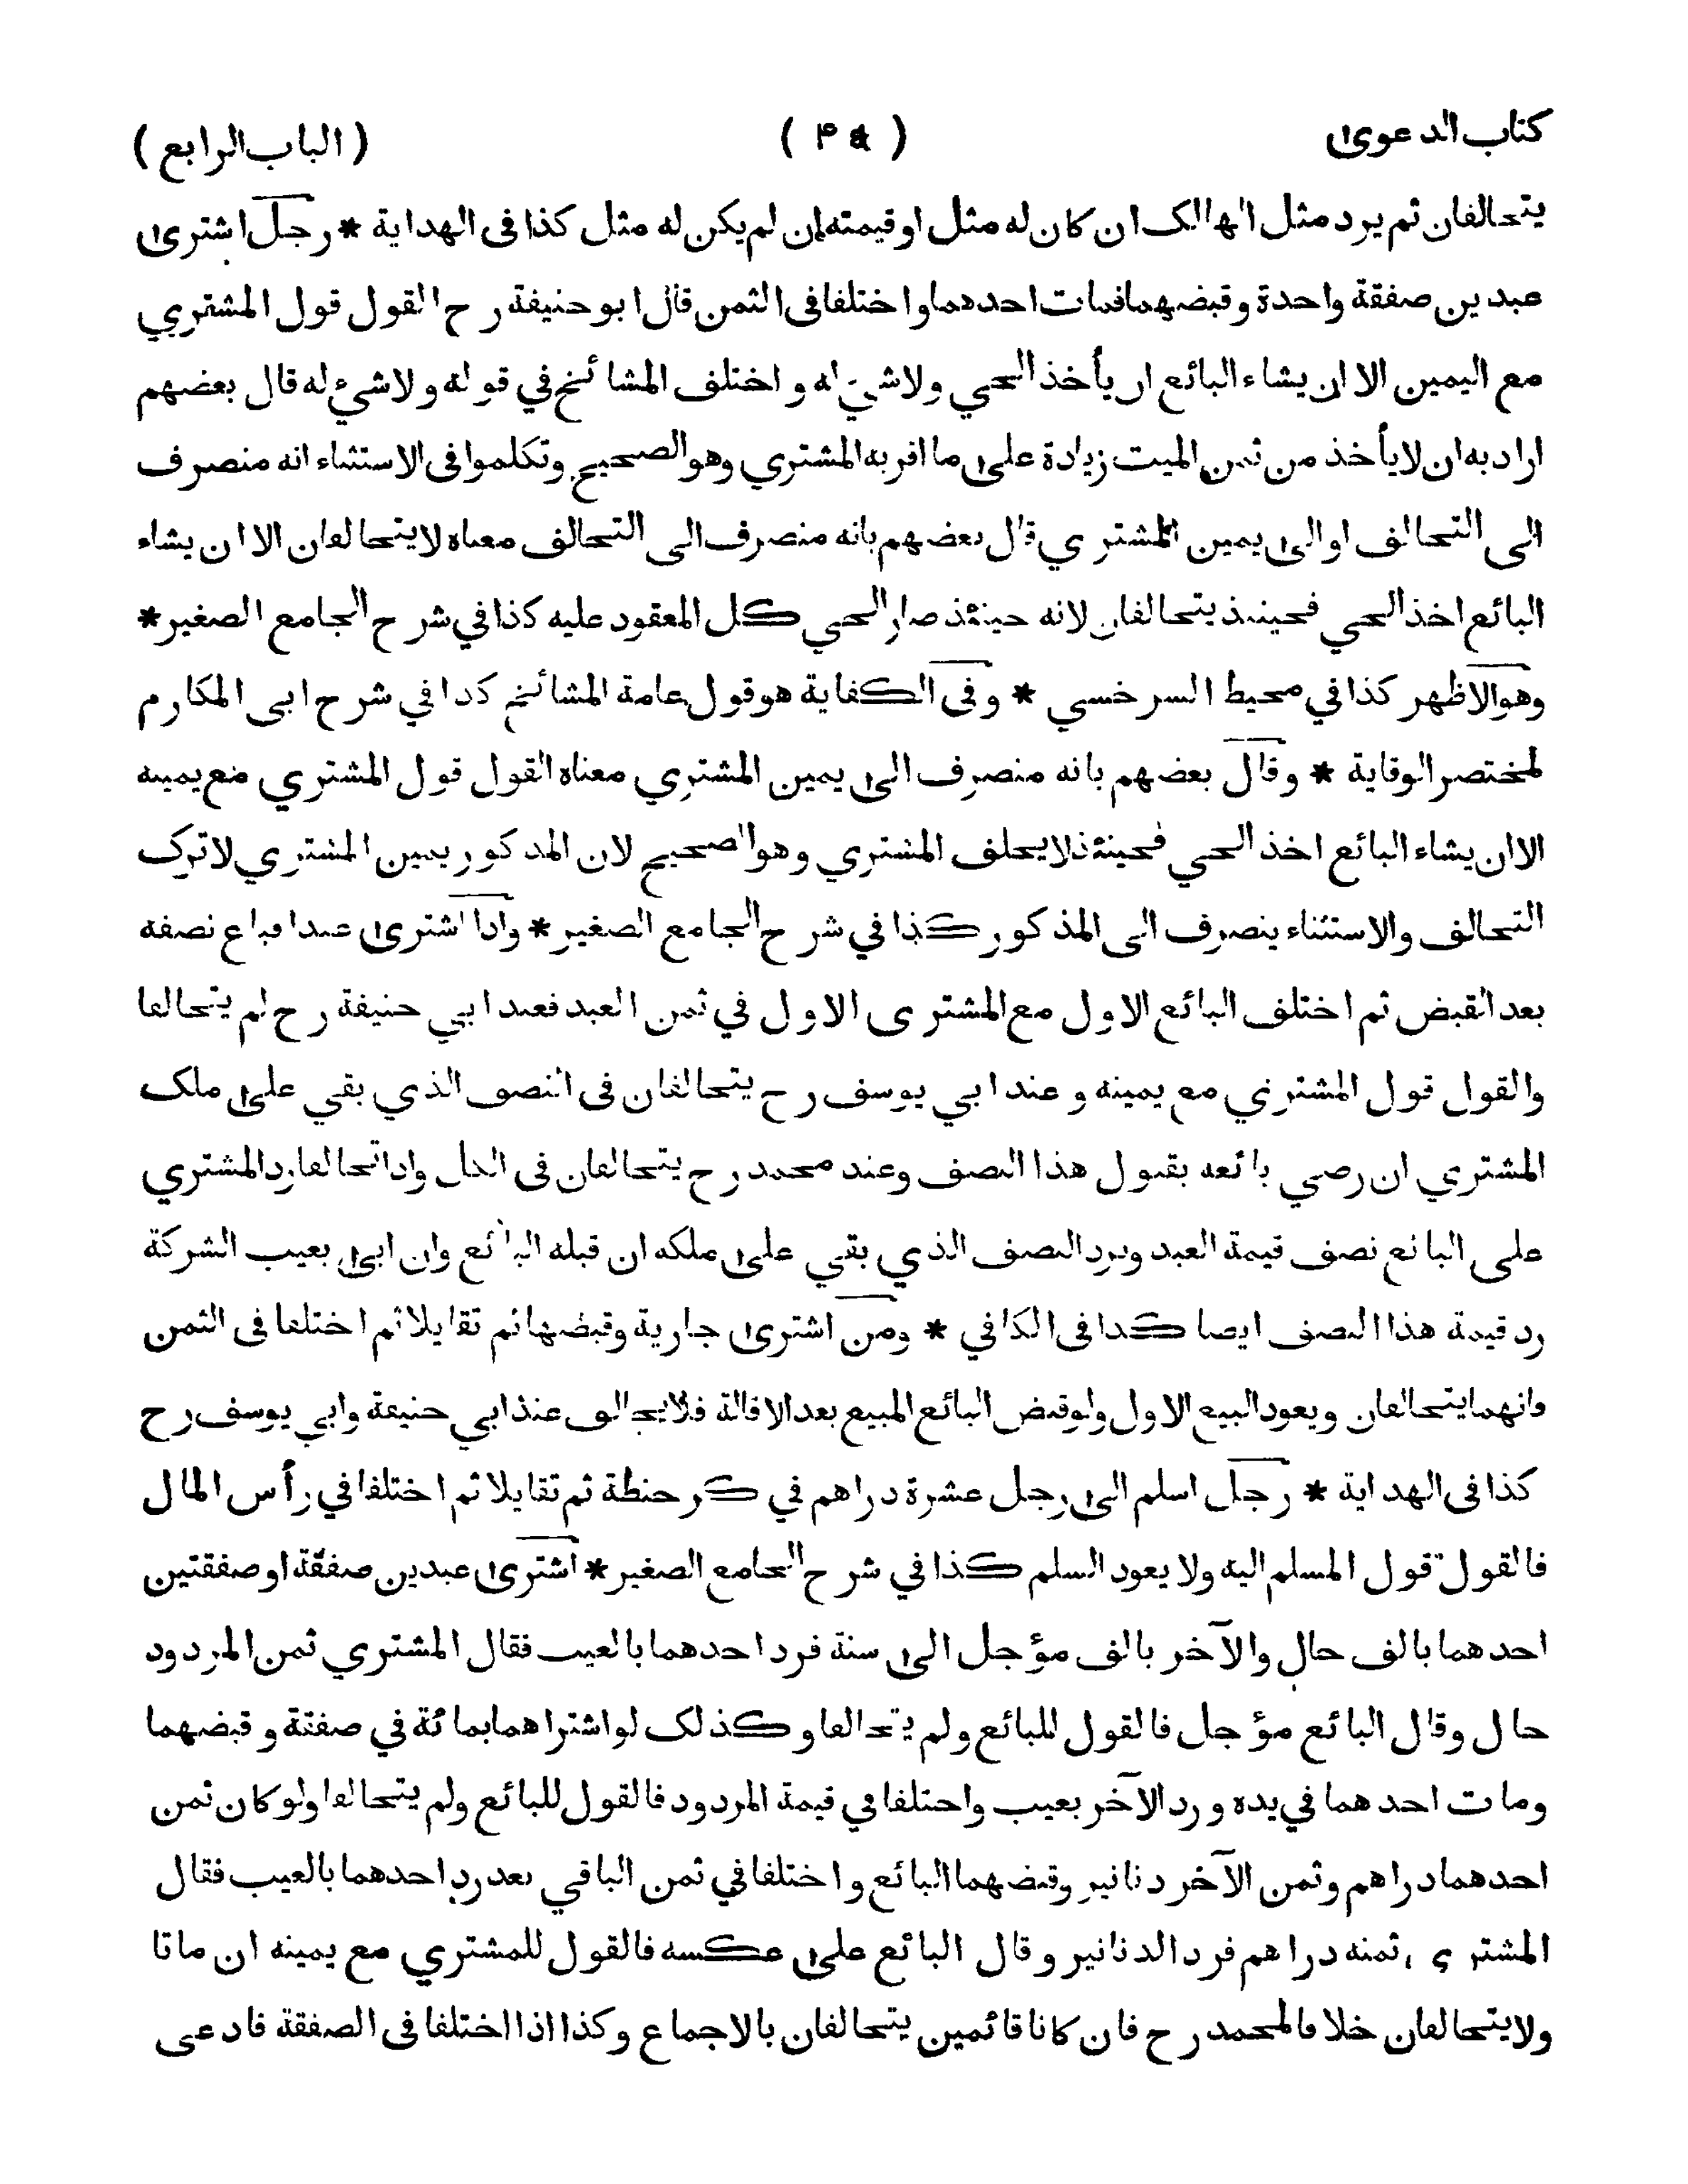 كتاب الدعوى ( ٥٤ ) ( الباب الرابع )
يتحالفان ثم يرد مثل الهالك ان كان له مثل او قيمته ان لم يكن له مثل كذا فى الهداية * رجل اشترى
عبدين صفقة واحدة وقبضهما فمات احدهما واختلفا فى الثمن قال ابو حنيفة رح القول قول المشتري
مع اليمين الا ان يشاء البائع ان يأخذ الحي ولا شيء له واختلف المشائخ في قوله ولا شيء له قال بعضهم
اراد به ان لا يأخذ من ثمن الميت زيادة على ما اقر به المشتري وهو الصحيح وتكلموا فى الاستثناء انه منصرف
الى التحالف او الى يمين المشتري قال بعضهم بانه منصرف الى التحالف معناه لا يتحالفان الا ان يشاء
البائع اخذ الحي فحينئذ يتحالفان لانه حينئذ صار الحي كل المعقود عليه كذا في شرح الجامع الصغير *
وهو الاظهر كذا في محيط السرخسي * وفى الكفاية هو قول عامة المشائخ كذا في شرح ابى المكارم
لمختصر الوقاية * وقال بعضهم بانه منصرف الى يمين المشتري معناه القول قول المشتري مع يمينه
الا ان يشاء البائع اخذ الحي فحينئذ لا يحلف المشتري وهو الصحيح لان المذكور يمين المشتري لا ترك
التحالف والاستثناء ينصرف الى المذكور كذا في شرح الجامع الصغير * واذا اشترى عبدا فباع نصفه
بعد القبض ثم اختلف البائع الاول مع المشترى الاول في ثمن العبد فعند ابي حنيفة رح لم يتحالفا
والقول قول المشتري مع يمينه وعند ابي يوسف رح يتحالفان فى النصف الذي بقي على ملك
المشتري ان رضي بائعه بقبول هذا النصف وعند محمد رح يتحالفان فى الكل واذا تحالفا رد المشتري
على البائع نصف قيمة العبد ويرد النصف الذي بقي على ملكه ان قبله البائع وان ابى بعيب الشركة
رد قيمة هذا النصف ايضا كذا فى الكافي * ومن اشترى جارية وقبضها ثم تقايلا ثم اختلفا فى الثمن
فانهما يتحالفان ويعود البيع الاول ولو قبض البائع المبيع بعد الاقالة فلا يحالف عند ابي حنيفة وابي يوسف رح
كذا فى الهداية * رجل اسلم الى رجل عشرة دراهم في كر حنطة ثم تقايلا ثم اختلفا في رأس المال
فالقول قول المسلم اليه ولا يعود السلم كذا في شرح الجامع الصغير * اشترى عبدين صفقة او صفقتين
احدهما بالف حال والآخر بالف مؤجل الى سنة فرد احدهما بالعيب فقال المشتري ثمن المردود
حال وقال البائع مؤجل فالقول للبائع ولم يتحالفا وكذلك لو اشتراهما بمائة في صفقة وقبضهما
ومات احدهما في يده ورد الآخر بعيب واختلفا في قيمة المردود فالقول للبائع ولم يتحالفا ولو كان ثمن
احدهما دراهم وثمن الآخر دنانير وقبضهما البائع واختلفا في ثمن الباقي بعد رد احدهما بالعيب فقال
المشتري ثمنه دراهم فرد الدنانير وقال البائع على عكسه فالقول للمشتري مع يمينه ان ماتا
ولا يتحالفان خلافا لمحمد رح فان كانا قائمين يتحالفان بالاجماع وكذا اذا اختلفا فى الصفقة فادعى